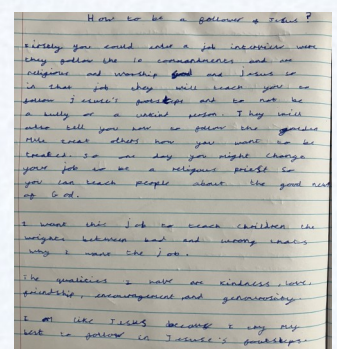 How to be a follower of Jesus?
Firstly you could enter a job interview were
they follow the 10 commandments and are
religious and worship God and Jesus so
in that job they will teach you to
follow Jesuse's footsteps and to not be
a bully or a unkind person. They will
also tell you how to follow the golden
rule treat others how you want to be
treated. So one day you might change
your job to be a religious priest so
you can teach people about the good news
of God.
I want this job to teach children the
wrights between bad and wrong thats
why I want the job.
The qualities I have are kindness, love,
friendship, encouragement and generousity.
I am like Jesus because I try my
best to follow in Jesuse's footsteps.